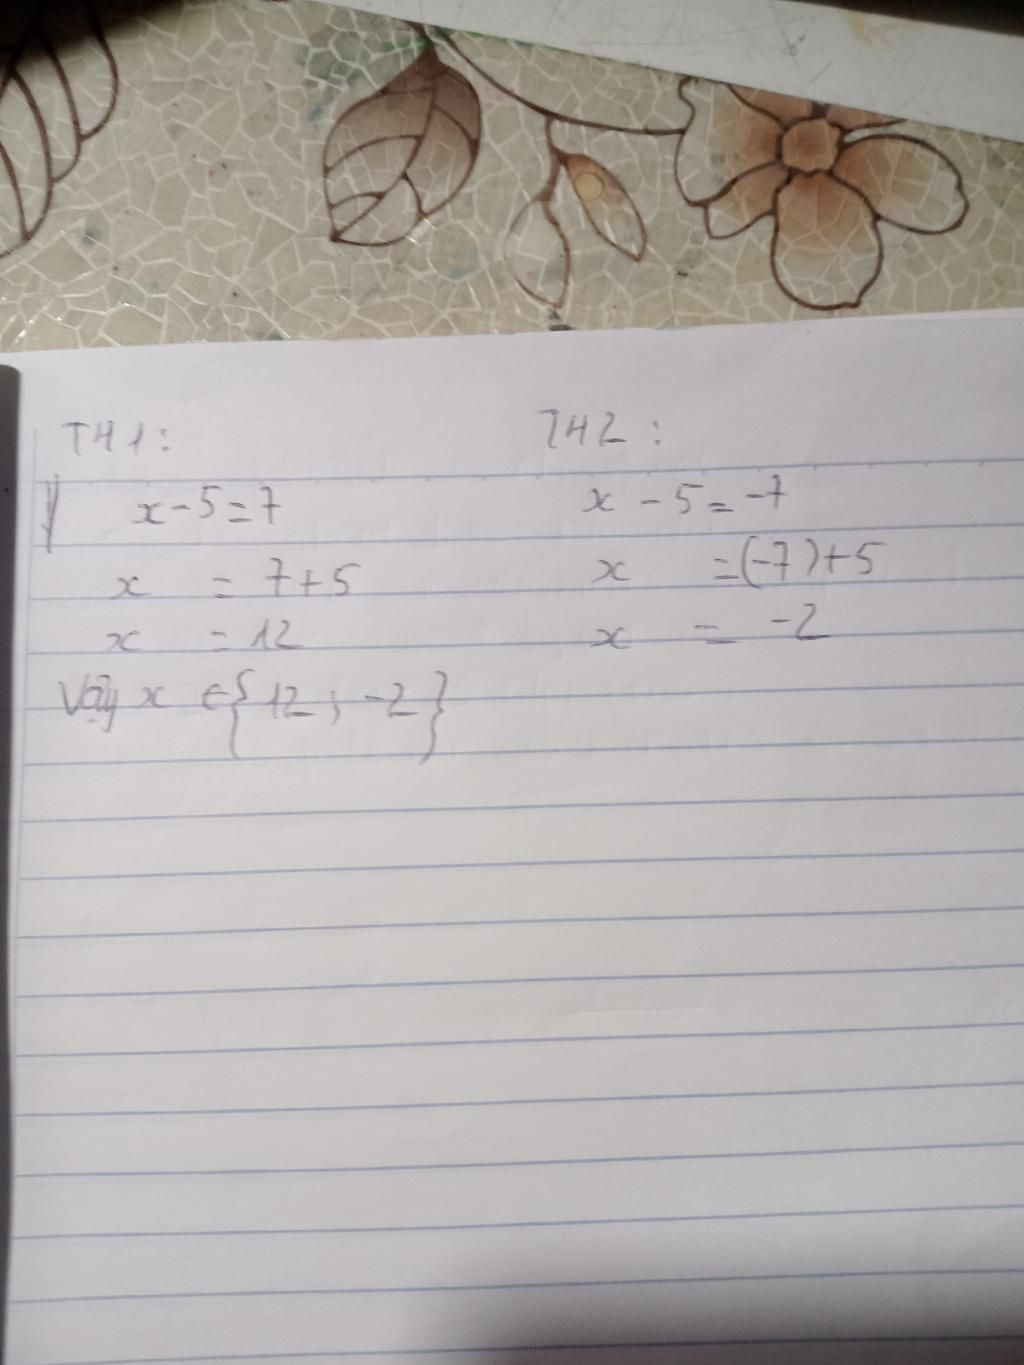 TH1:
x - 5 = 7
x = 7 + 5
x = 12
TH2:
x - 5 = -7
x = (-7) + 5
x = -2
Vậy x ∈ {12 ; -2}